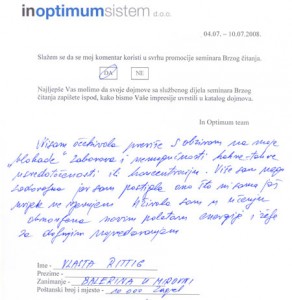 inoptimumsistem d.o.o.
04.07. – 10.07.2008.
Slažem se da se moj komentar koristi u svrhu promocije seminara Brzog čitanja.
DA NE
Najljepše Vas molimo da svoje dojmove sa službenog dijela seminara Brzog
čitanja zapišete ispod, kako bismo Vaše impresije uvrstili u katalog dojmova.
In Optimum team
Nisam očekivala previše s obzirom na moje
"blokade" zaborava i nemogućnosti
usredotočenosti, ili koncentracije. Više sam nego
zadovoljna jer sam postigla ono što ni sama još
uvijek ne vjerujem. Uživala sam u učenju
novim poletom energije i želje
za daljnjim napredovanjem
Ime – VLASTA RITTIG
Prezime –
Zanimanje – BALERINA U MIROVINI
Poštanski broj i mjesto – 10 000 Zagreb